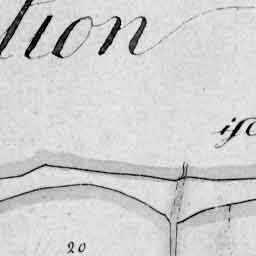 tion
20